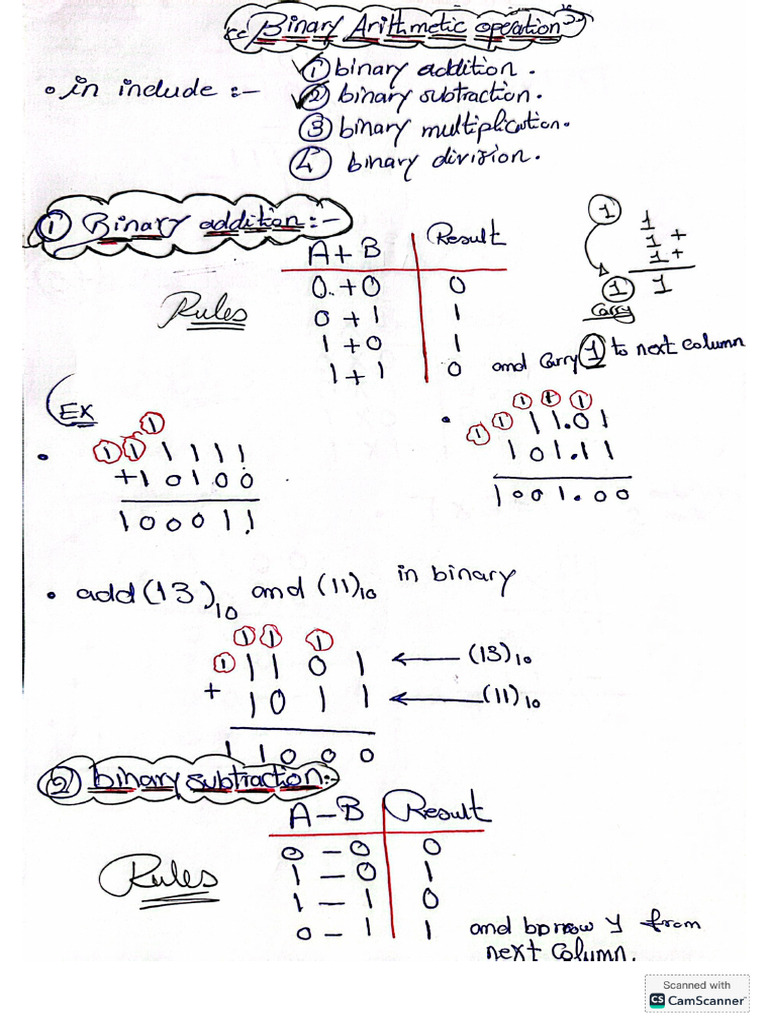 "Binary Arithmetic operation"
• in include :-
① binary addition.
② binary subtraction.
③ binary multiplication.
④ binary division.
① Binary addition:-
Rules
A+B Result
0+0 0
0+1 1
1+0 1
1+1 0 and carry ① to next column
① 1
1 +
1 +
① 1
Carry
EX
•
①
① ① 1 1 1 1
+1 0 1 0 0
1 0 0 0 1 1
•
① ① ①
① ① 1 1.01
1 0 1.11
1 0 0 1.00
• add (13)10 and (11)10 in binary
① ① ①
① 1 1 0 1 ← (13)10
+ 1 0 1 1 ← (11)10
1 1 0 0 0
② binary subtraction:-
Rules
A-B Result
0-0 0
1-0 1
1-1 0
0-1 1 and borrow y from
next column.
Scanned with
CS CamScanner